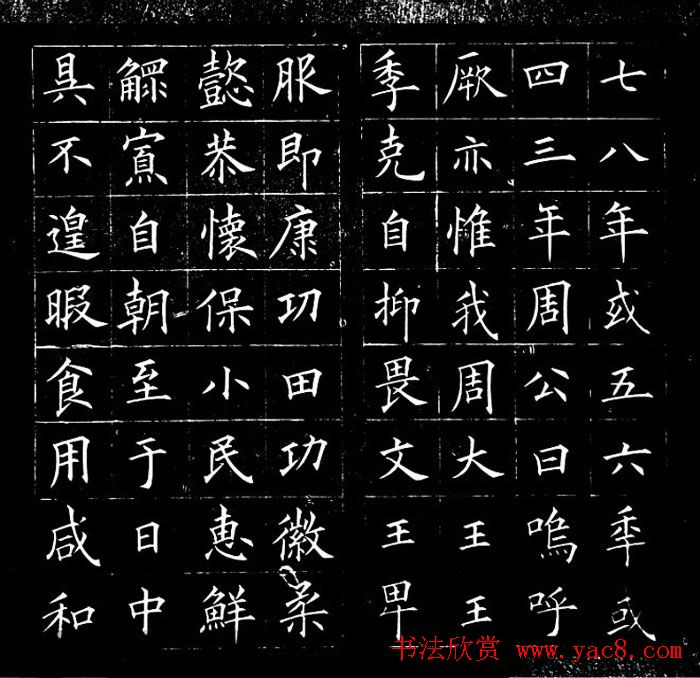 七八年或五六年或
四三年周公曰嗚呼
厥亦惟我周大王王
季克自抑畏文王卑
服即康功田功徽柔
懿恭懷保小民惠鮮
鰥寡自朝至于日中
具不遑暇食用咸和
书法欣赏 www.yac8.com